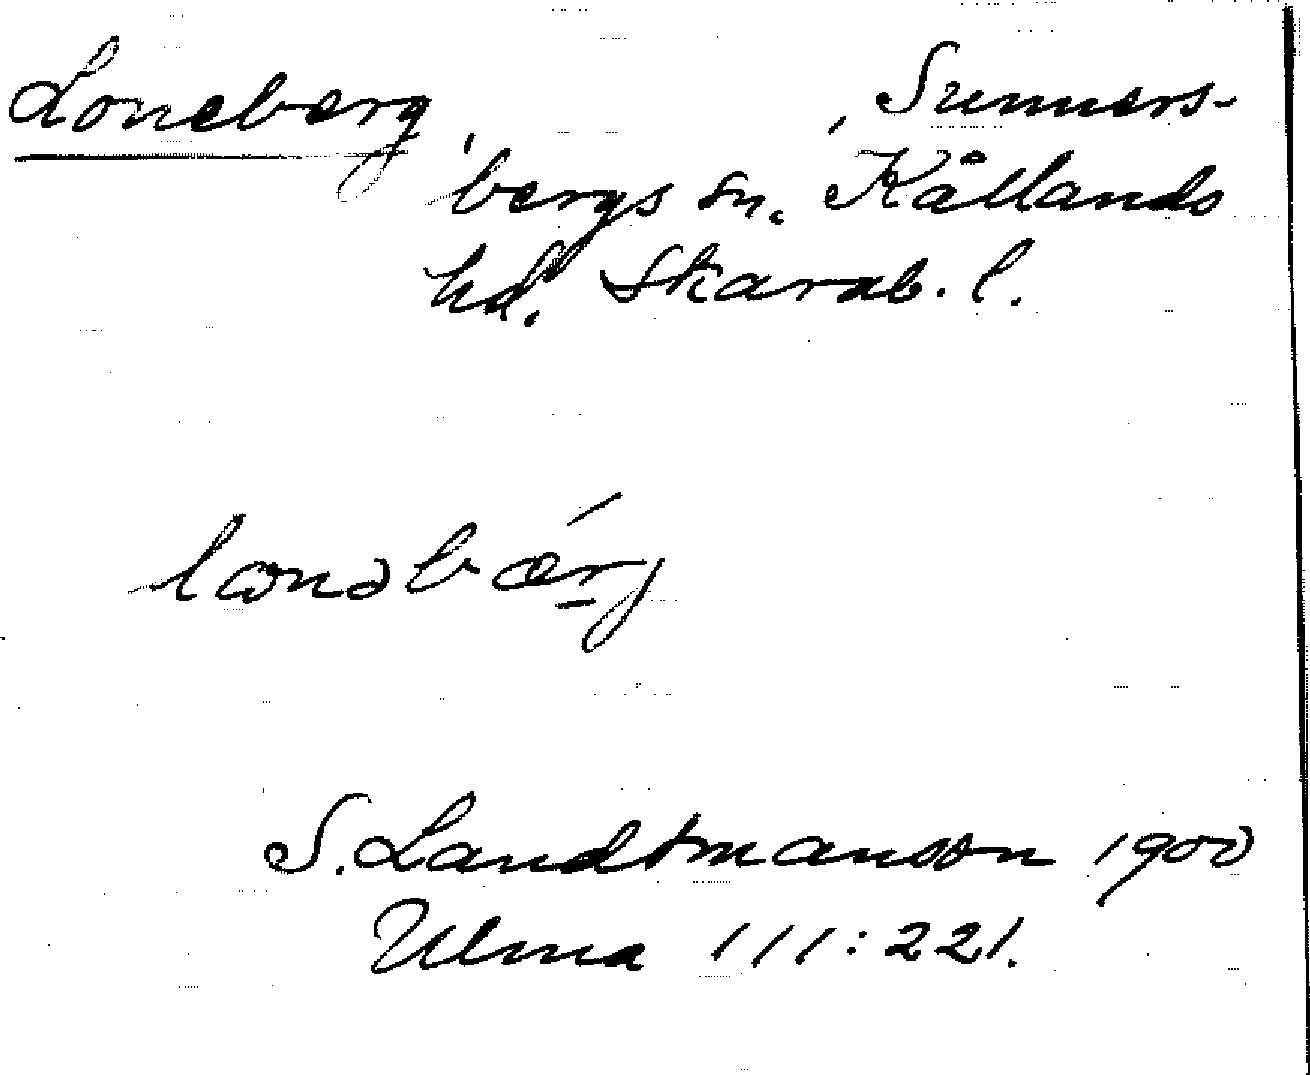 Loneberg, Sunners-
bergs sn. Kållands
hd. Skarab. l.
lωnəbǽrj
S. Landtmanson 1900
Ulma 111:221.